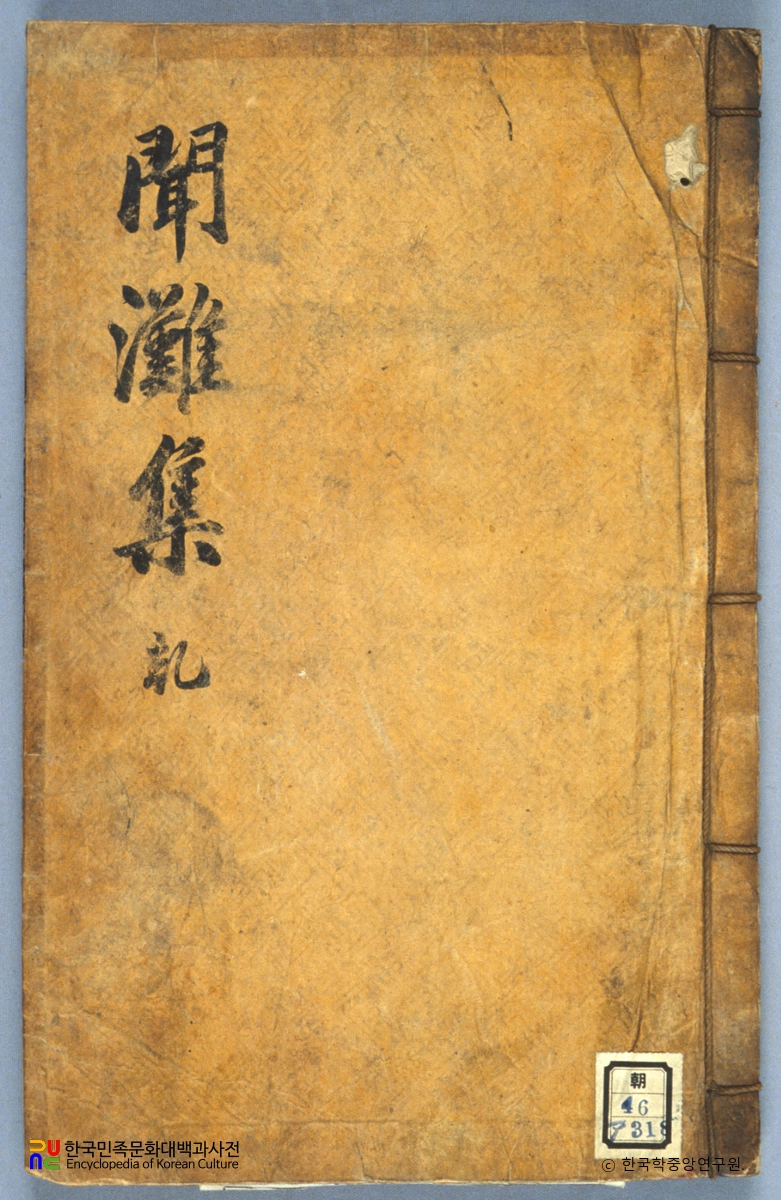 聞灘集 礼
朝
46
한국민족문화대백과사전
Encyclopedia of Korean Culture
© 한국학중앙연구원